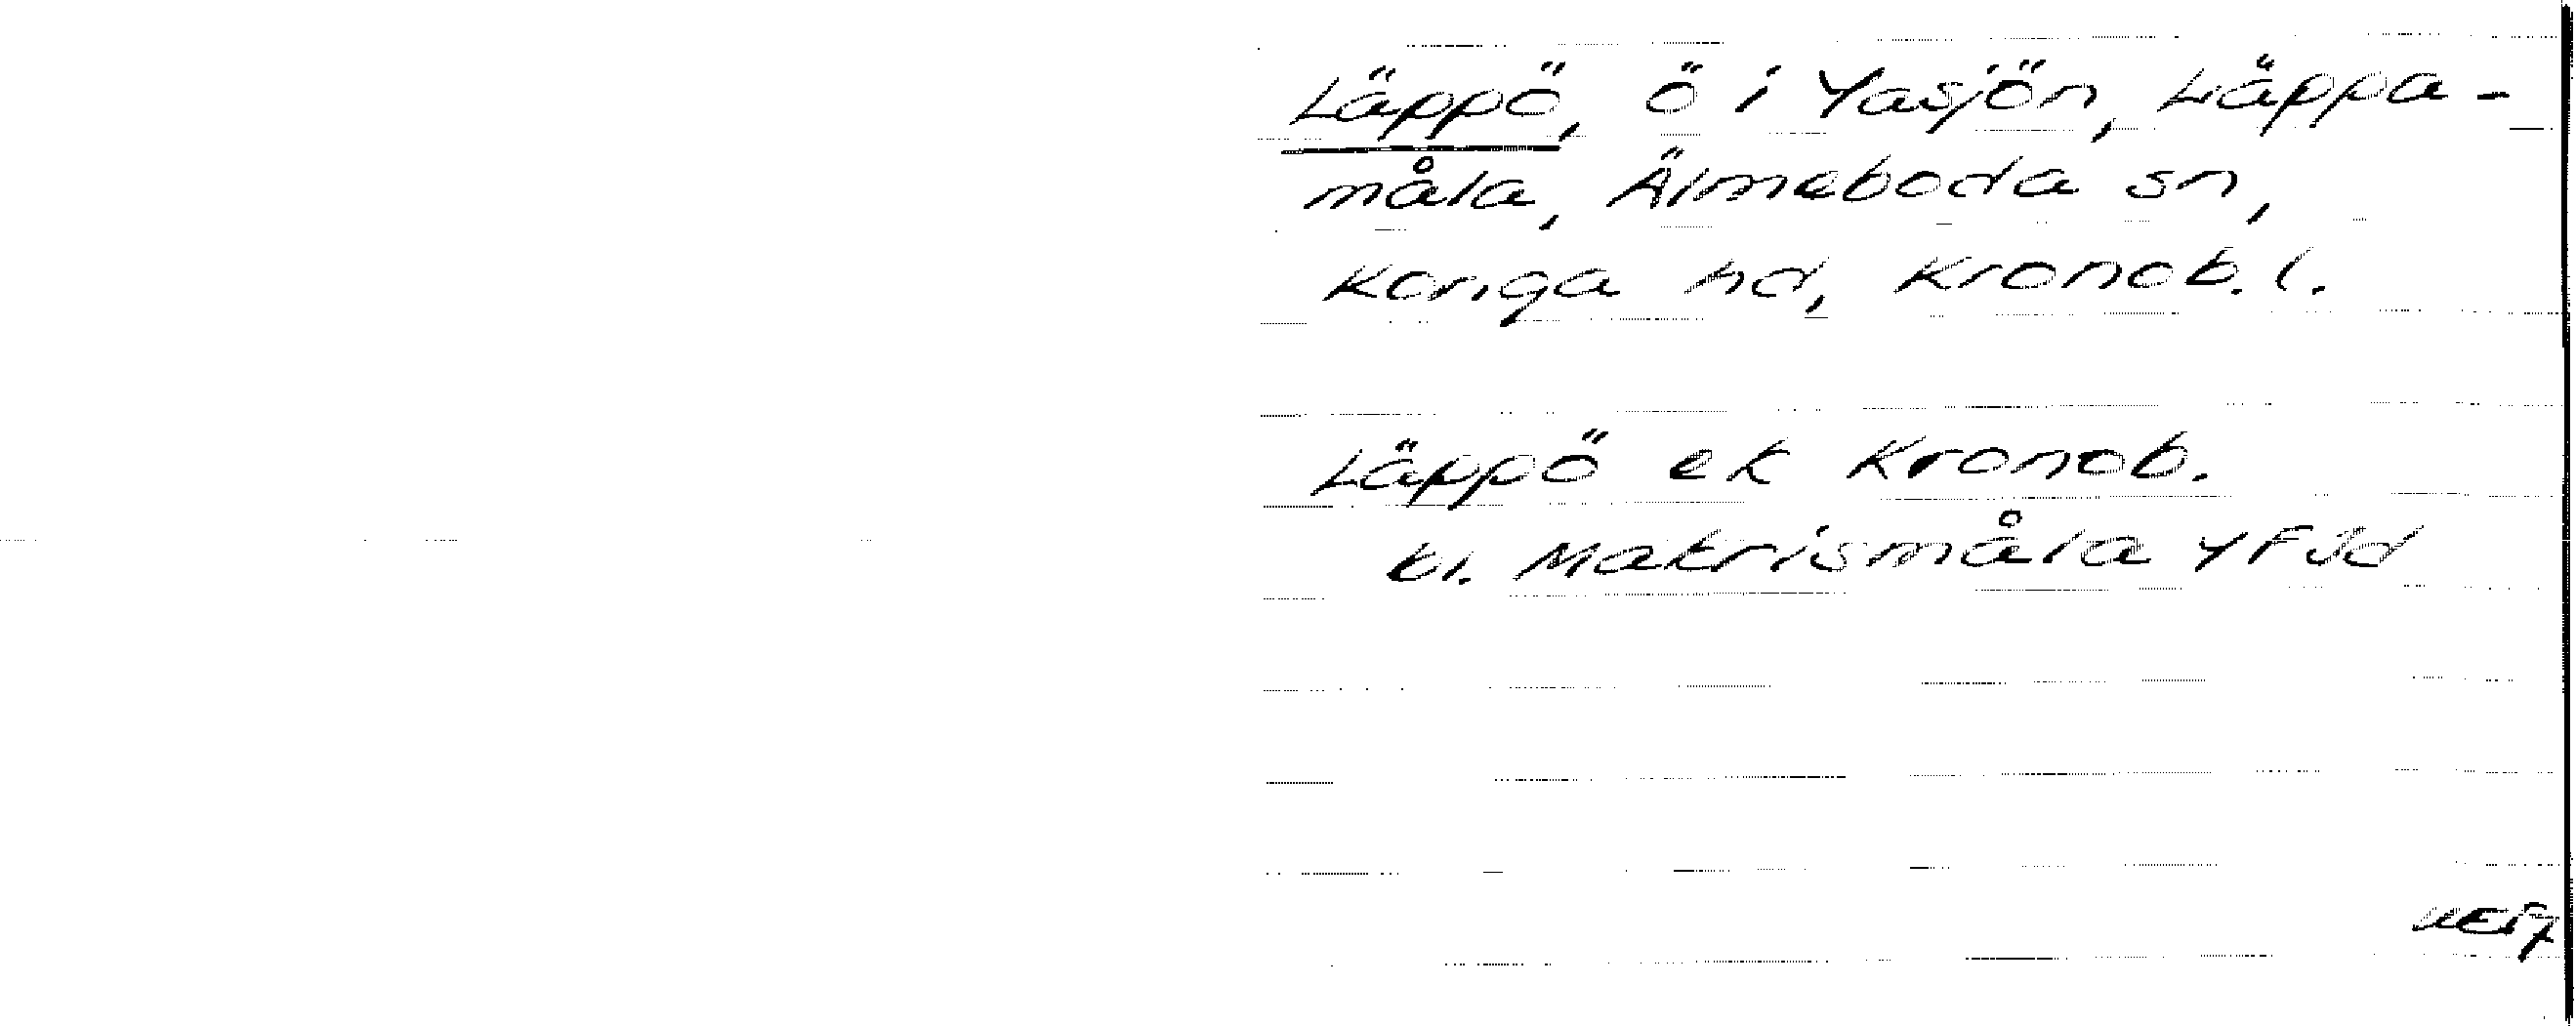 Läppö, ö i Yasjön, Läppa-
måla, Älmeboda sn,
Konga hd, Kronob. l.
Läppö ek Kronob.
bl. Matrismåla 4F Jd